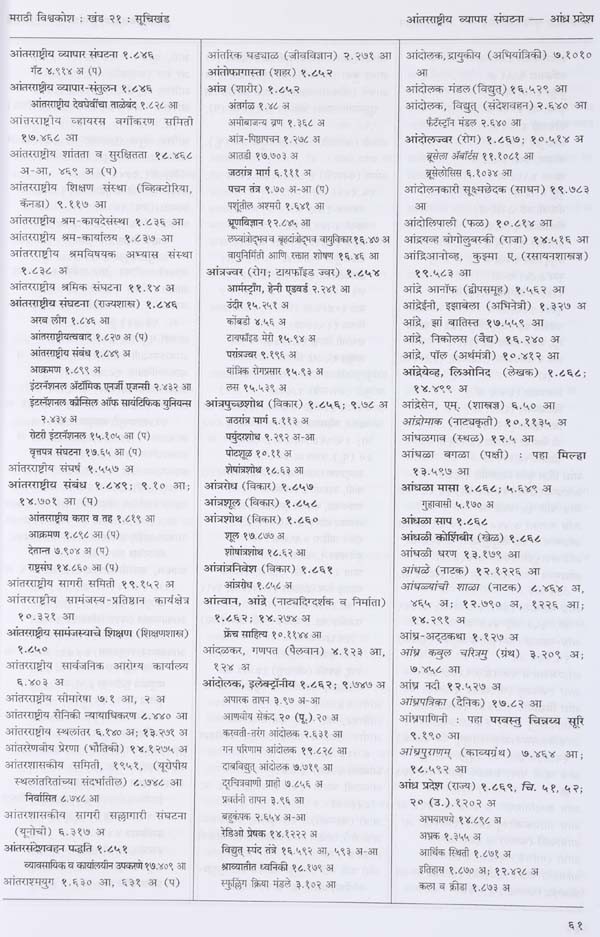 मराठी विश्वकोश : खंड २१ : सूचिखंड
आंतरराष्ट्रीय व्यापार संघटना — आंध्र प्रदेश
आंतरराष्ट्रीय व्यापार संघटना १.८४६
गॅट ४.९१४ अ (प)
आंतरराष्ट्रीय व्यापार-संतुलन १.८४६
आंतरराष्ट्रीय देवघेवींचा ताळेबंद १.८२८ आ
आंतरराष्ट्रीय व्हायरस वर्गीकरण समिती
१७.४६८ आ
आंतरराष्ट्रीय शांतता व सुरक्षितता १८.४६८
अ-आ, ४६९ अ (प)
आंतरराष्ट्रीय शिक्षण संस्था (व्हिक्टोरिया,
कॅनडा) ९.११७ आ
आंतरराष्ट्रीय श्रम-कायदेसंस्था १.८३६ आ
आंतरराष्ट्रीय श्रम-कार्यालय १.८३७ आ
आंतरराष्ट्रीय श्रमविषयक अभ्यास संस्था
१.८३८ अ
आंतरराष्ट्रीय श्रमिक संघटना ११.१४ अ
आंतरराष्ट्रीय संघटना (राज्यशास्त्र) १.८४६
अरब लीग १.८४६ आ
आंतरराष्ट्रीयत्ववाद १.८२७ अ (प)
आंतरराष्ट्रीय संबंध १.८४९ अ
आक्रमण १.८९९ आ
इंटरनॅशनल अ‍ॅटॉमिक एनर्जी एजन्सी २.४३२ आ
इंटरनॅशनल कौन्सिल ऑफ सायंटिफिक युनियन्स
२.४३४ अ
रोटरी इंटरनॅशनल १५.१०५ आ (प)
वृत्तपत्र संघटना १७.६५ आ (प)
आंतरराष्ट्रीय संघर्ष १.५५७ अ
आंतरराष्ट्रीय संबंध १.८४९; ९.१० आ;
१४.७०१ आ (प)
आंतरराष्ट्रीय करार व तह १.८१९ आ
आक्रमण १.८९८ आ (प)
देतान्त ७.९०४ अ (प)
राष्ट्रसंघ १४.८६० आ (प)
आंतरराष्ट्रीय सागरी समिती १९.१५२ अ
आंतरराष्ट्रीय सामंजस्य-प्रतिष्ठान कार्यक्षेत्र
१०.३२१ आ
आंतरराष्ट्रीय सामंजस्याचे शिक्षण (शिक्षणशास्त्र)
१.८५०
आंतरराष्ट्रीय सार्वजनिक आरोग्य कार्यालय
६.४०३ अ
आंतरराष्ट्रीय सीमारेषा ७.१ आ, २ अ
आंतरराष्ट्रीय सैनिकी न्यायाधिकरण ८.४४० आ
आंतरराष्ट्रीय स्थलांतर ६.१४० अ; १३.२७१ अ
आंतररेणवीय प्रेरणा (भौतिकी) १४.१२७५ अ
आंतरशासकीय समिती, १९५१, (यूरोपीय
स्थलांतरितांच्या संदर्भातील) ८.७४८ आ
निर्वासित ८.७४८ आ
आंतरशासकीय सागरी सल्लागारी संघटना
(यूनोची) ६.३१७ अ
आंतरसंदेशवहन पद्धति १.८५१
व्यावसायिक व कार्यालयीन उपकरणे १७.४०९ आ
आंतराश्मयुग १.६३० आ, ६३१ अ (प)
आंतरिक घड्याळ (जीवविज्ञान) २.२७१ आ
आंतोफागास्ता (शहर) १.८५२
आंत्र (शारीर) १.८५२
अंतर्गळ १.४८ अ
अमीबाजन्य व्रण १.३६८ अ
आंत्र-पिष्ठापचन १.२७८ अ
आतडी १७.७०३ अ
जठरांत्र मार्ग ६.१११ अ
पचन तंत्र १.७० अ-आ (प)
पशूंतील अश्मरी १.६४१ आ
भ्रूणविज्ञान १२.८४५ आ
लघ्वांत्रोद्‌भव व बृहदांत्रोद्‌भव वायुविकार १६.४७ अ
वायुनिर्मिती आणि रक्तात शोषण १६.४६ आ
आंत्रज्वर (रोग; टायफॉइड ज्वर) १.८५४
आर्मस्ट्राँग, हेनी एडवर्ड २.२४१ आ
उंदीर १५.२५१ अ
कोंबडी ४.५६ अ
टायफॉइड मेरी १५.९४ अ
परांत्रज्वर ९.१९६ अ
यांत्रिक रोगप्रसार १५.९३ अ
लस १५.५३९ अ
आंत्रपुच्छशोथ (विकार) १.८५६; ९.७८ अ
जठरांत्र मार्ग ६.११३ अ
पर्युदरशोथ ९.२९२ अ-आ
पोटशूळ १०.११ अ
शेषांत्रशोथ १८.६३ आ
आंत्ररोध (विकार) १.८५७
आंत्रशूल (विकार) १.८५८
आंत्रशोथ (विकार) १.८६०
शूल १७.८७७ अ
शोषांत्रशोथ १८.६२ आ
आंत्रांत्रनिवेश (विकार) १.८६१
आंत्ररोध १.८५८ अ
आंत्वान, आंद्रे (नाट्यदिग्दर्शक व निर्माता)
१.८६२; १४.२७४ अ
फ्रेंच साहित्य १०.११४४ आ
आंदळकर, गणपत (पैलवान) ४.१२३ आ,
१२४ अ
आंदोलक, इलेक्ट्रॉनीय १.८६२; ९.७४७ अ
अपारक तापन ३.९७ अ-आ
आणवीय सेकंद २० (पू.).२० अ
करवती-तरंग आंदोलक २.६३१ आ
गन परिणाम आंदोलक १९.८२८ आ
दाबविद्युत् आंदोलक ७.७१९ आ
दूरचित्रवाणी ग्राही ७.८५६ अ
प्रवर्तनी तापन ३.९६ आ
बहुकंपक २.६५४ अ-आ
रेडिओ प्रेषक १४.१२२२ अ
विद्युत् स्पंद तंत्र १६.५९२ आ, ५९३ अ-आ
श्राव्यातीत ध्वनिकी १८.१७९ अ
स्फुल्लिंग क्रिया मंडले ३.१०२ आ
आंदोलक,द्रायुकीय (अभियांत्रिकी) ७.१०१०
आ
आंदोलक मंडल (विद्युत्) १६.५२९ आ
आंदोलक, विद्युत् (संदेशवहन) २.६४० आ
फँटॅस्ट्रॉन मंडल २.६४० आ
आंदोलज्वर (रोग) १.८६७; १०.५१४ अ
ब्रूसेला अ‍ॅबॉर्टस ११.१०८१ आ
ब्रूसेलोसिस ६.१०३४ आ
आंदोलनकारी सूक्ष्मछेदक (साधन) १९.७८३
आ
आंदोलिपाली (फळ) १०.८१४ आ
आंद्रयव्ह बोगोलुबस्की (राजा) १४.५१६ आ
आंद्रिआनोव्ह, कुझ्मा ए. (रसायनशास्त्रज्ञ)
१९.५८३ आ
आंद्रे आनॉफ (द्वीपसमूह) १.५६२ आ
आंद्रेईनी, इझाबेला (अभिनेत्री) १.३२७ अ
आंद्रे, झां बातिस्त १७.५५९ आ
आंद्रे, निकोलस (वैद्य) १६.२४० अ
आंद्रे, पॉल (अर्थमंत्री) १०.४१२ आ
आंद्रेयेव्ह, लिओनिद (लेखक) १.८६८;
१४.४९९ अ
आंद्रेसेन, एम्. (शास्त्रज्ञ) ६.५० आ
आंद्रोमाक (नाट्यकृती) १०.११३५ अ
आंधळगाव (स्थळ) १२.५ आ
आंधळा बगळा (पक्षी) : पहा मिल्हा
१३.५९७ आ
आंधळा मासा १.८६८; ५.६४९ अ
गुहावासी ५.१७० अ
आंधळा साप १.८६८
आंधळी कोशिंबीर (खेळ) १.८६८
आंधळी धरण १३.१७९ आ
आंधळे (नाटक) १२.१२२६ आ
आंधळ्यांची शाळा (नाटक) ८.४६४ अ,
४६५ अ; १२.७९० अ, १२२६ आ;
१४.२९१ अ
आंध्र-अट्ठकथा १.१२७ अ
आंध्र कवुल चरित्रमु (ग्रंथ) ३.२०९ अ;
७.४५८ आ
आंध्र नदी १२.५२७ अ
आंध्रपत्रिका (दैनिक) १७.८२ आ
आंध्रपाणिनी : पहा परवस्तु चिन्नय्य सूरि
९.१९० आ
आंध्रपुराणम् (काव्यग्रंथ) ७.४६४ आ;
१८.५९२ आ
आंध्र प्रदेश (राज्य) १.८६९, चि. ५१, ५२;
२० (उ.).१२०२ अ
अभयारण्ये १४.८९८ अ
अभ्रक १.३५५ अ
आर्थिक स्थिती १.८७१ अ
इतिहास १.८७० अ; १२.४२८ अ
कला व क्रीडा १.८७३ अ
६१